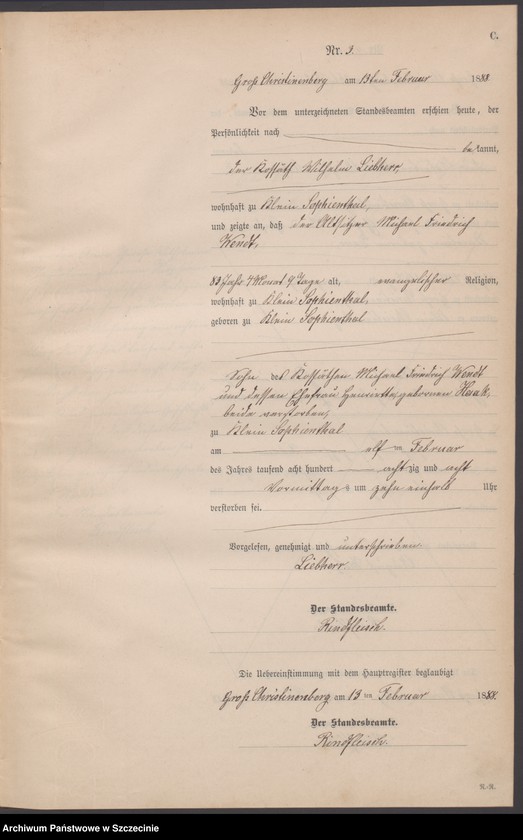 C.
Nr. 3.
Groß Christinenberg am 13ten Februar 1888.
Vor dem unterzeichneten Standesbeamten erschien heute, der
Persönlichkeit nach
bekannt,
der Kossäth Wilhelm Liebherr,
wohnhaft zu Klein Sophienthal,
und zeigte an, daß der Altsitzer Michael Friedrich
Wendt,
83 Jahr 4 Monat 9 Tage alt, evangelischer Religion,
wohnhaft zu Klein Sophienthal,
geboren zu Klein Sophienthal
Sohn des Kossäthen Michael Friedrich Wendt
und dessen Ehefrau Henriette, geborenen
beide verstorben,
zu Klein Sophienthal
am elf ten Februar
des Jahres tausend acht hundert achtzig und acht
Vormittags um zehn einhalb Uhr
verstorben sei.
Vorgelesen, genehmigt und unterschrieben
Liebherr.
Der Standesbeamte.
Rindfleisch.
Die Uebereinstimmung mit dem Hauptregister beglaubigt
Groß Christinenberg am 13 ten Februar 1888.
Der Standesbeamte.
Rindfleisch.
R.-R.
Archiwum Państwowe w Szczecinie